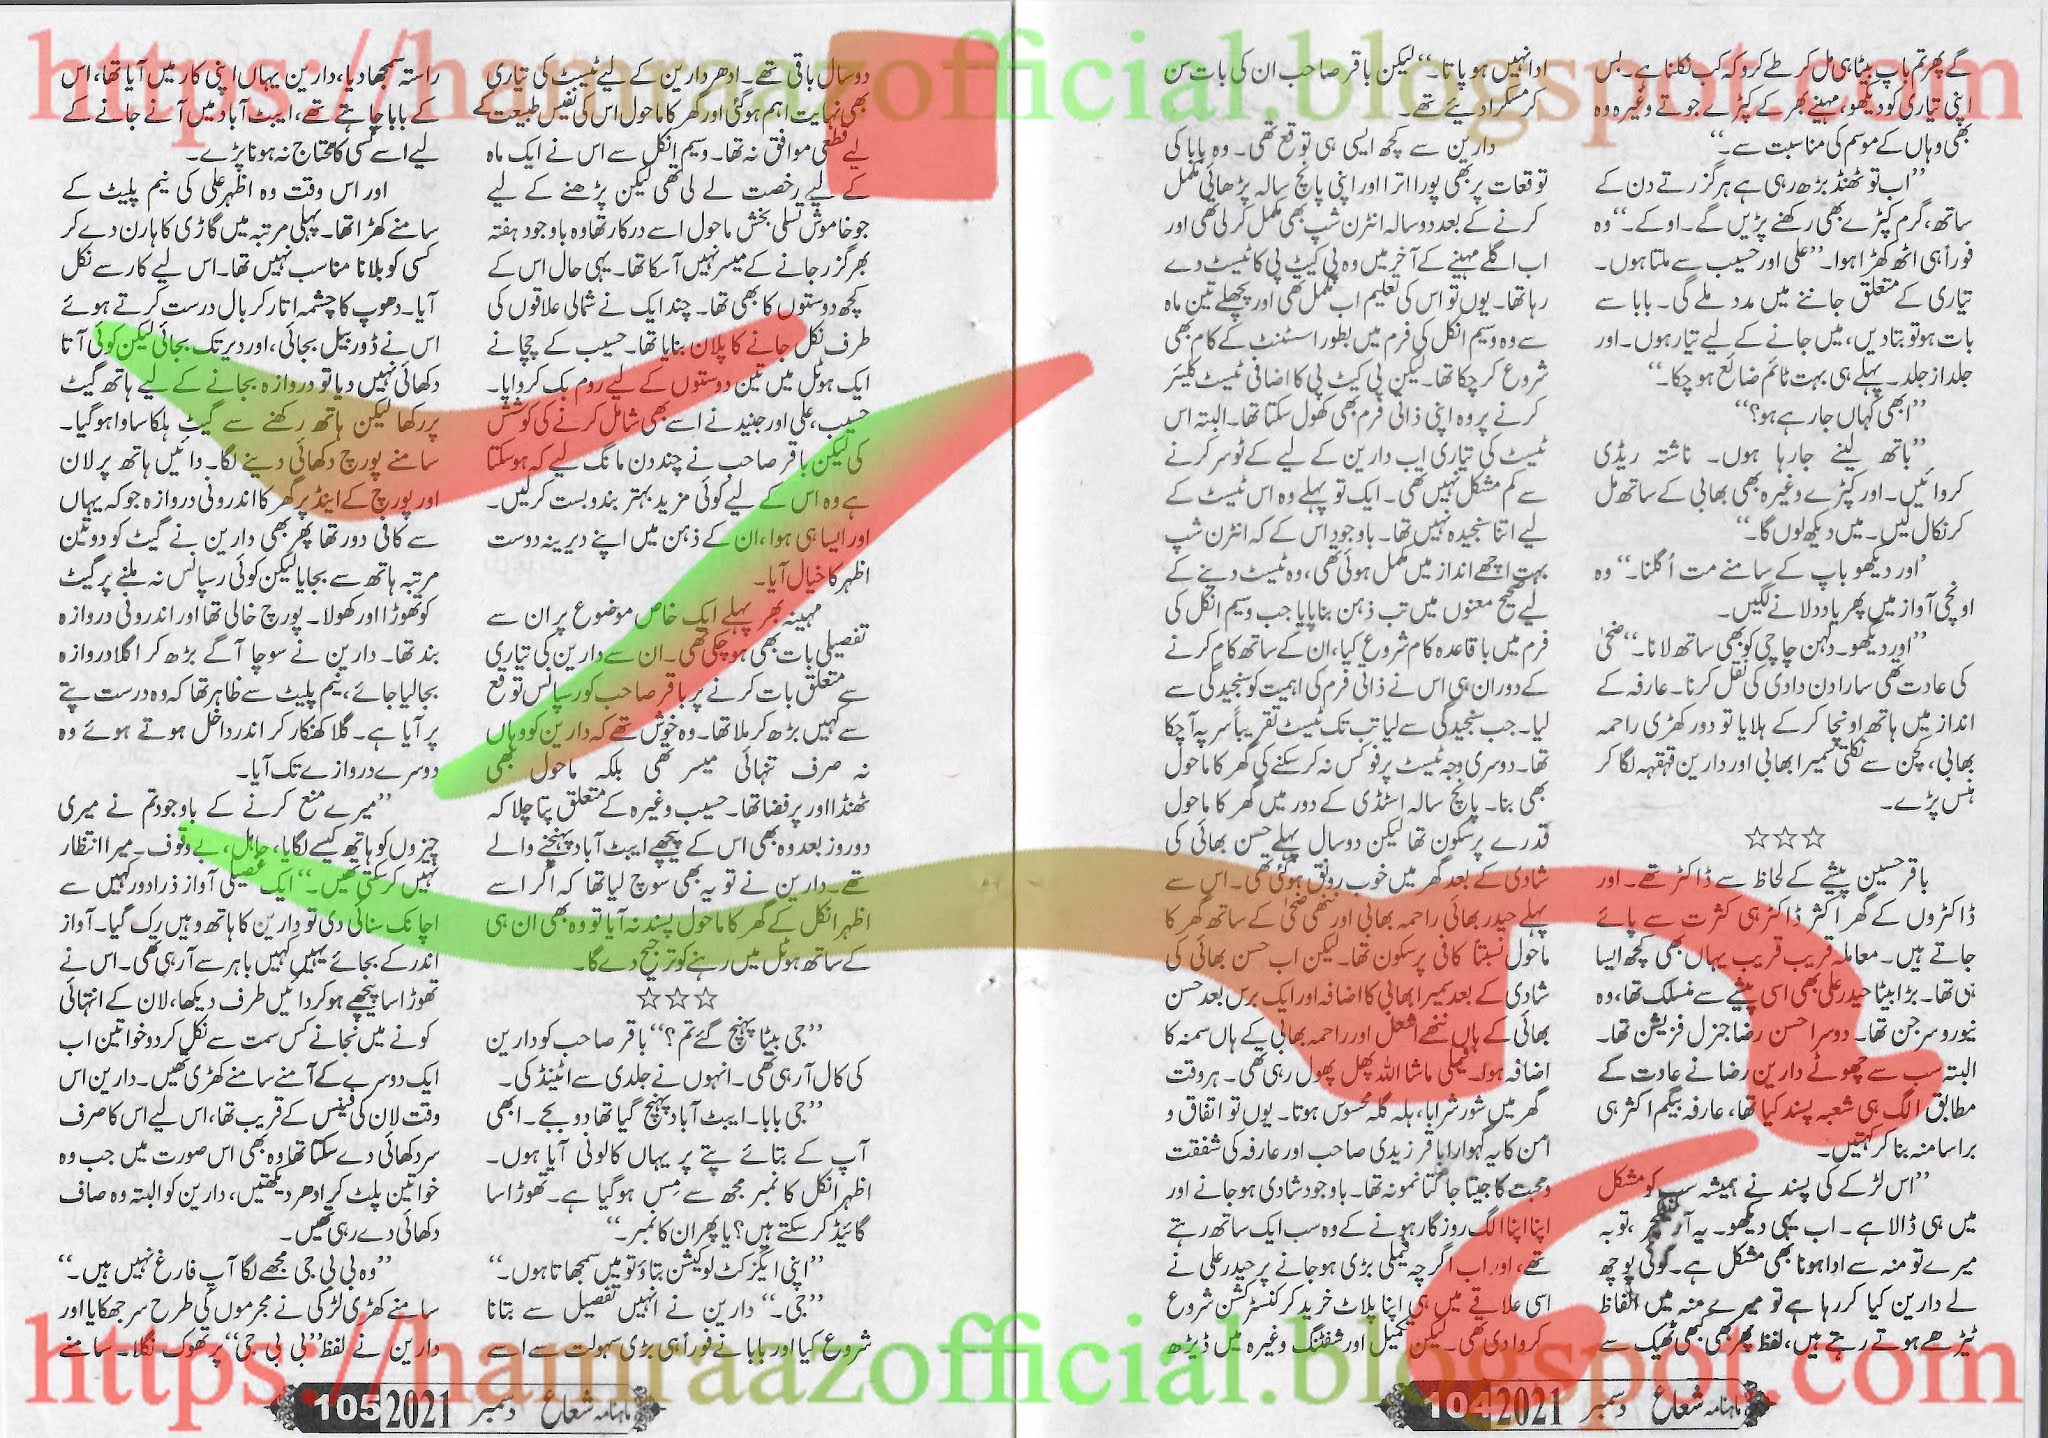 https://hamraazofficial.blogspot.com
گے پھر تم باپ بیٹا ہی مل کر طے کرو کہ کب نکلنا ہے۔ بس
اپنی تیاری کو دیکھو، مہینے بھر کے کپڑے جوتے وغیرہ وہ
بھی وہاں کے موسم کی مناسبت سے۔“
”اب تو ٹھنڈ بڑھ رہی ہے ہر گزرتے دن کے
ساتھ، گرم کپڑے بھی رکھنے پڑیں گے۔ اوکے۔“ وہ
فوراً ہی اٹھ کھڑا ہوا۔ ”علی اور حسیب سے ملتا ہوں۔
تیاری کے متعلق جاننے میں مدد ملے گی۔ بابا سے
بات ہو تو بتا دیں، میں جانے کے لیے تیار ہوں۔ اور
جلد از جلد۔ پہلے ہی بہت ٹائم ضائع ہو چکا۔“
”ابھی کہاں جا رہے ہو؟“
”باتھ لینے جا رہا ہوں۔ ناشتہ ریڈی
کروائیں۔ اور کپڑے وغیرہ بھی بھابی کے ساتھ مل
کر نکال لیں۔ میں دیکھ لوں گا۔“
’اور دیکھو باپ کے سامنے مت اُگلنا۔“ وہ
اونچی آواز میں پھر یاد دلانے لگیں۔
”اور دیکھو۔ دلہن چاچی کو بھی ساتھ لانا۔“ ضحیٰ
کی عادت تھی سارا دن دادی کی نقل کرنا۔ عارفہ کے
انداز میں ہاتھ اونچا کر کے ہلایا تو دور کھڑی راحمہ
بھابی، کچن سے نکلتی سمیرا بھابی اور دارین قہقہہ لگا کر
ہنس پڑے۔
☆☆☆
باقر حسین پیشے کے لحاظ سے ڈاکٹر تھے۔ اور
ڈاکٹروں کے گھر اکثر ڈاکٹر ہی کثرت سے پائے
جاتے ہیں۔ معاملہ قریب قریب یہاں بھی کچھ ایسا
ہی تھا۔ بڑا بیٹا حیدر علی بھی اسی پیشے سے منسلک تھا، وہ
نیورو سرجن تھا۔ دوسرا حسن رضا جنرل فزیشن تھا۔
البتہ سب سے چھوٹے دارین رضا نے عادت کے
مطابق الگ ہی شعبہ پسند کیا تھا، عارفہ بیگم اکثر ہی
برا سا منہ بنا کر کہتیں۔
”اس لڑکے کی پسند نے ہمیشہ سب کو مشکل
میں ہی ڈالا ہے۔ اب یہی دیکھو۔ یہ ، توبہ
میرے تو منہ سے ادا ہونا بھی مشکل ہے۔ کوئی پوچھ
لے دارین کیا کر رہا ہے تو میرے منہ میں الفاظ
ٹیڑھے ہوتے رہتے ہیں، لفظ پھر بھی کبھی ٹھیک سے
ادا نہیں ہو پاتا۔“ لیکن باقر صاحب ان کی بات سن
کر مسکرا دیے تھے۔
دارین سے کچھ ایسی ہی توقع تھی۔ وہ بابا کی
توقعات پر بھی پورا اترا اور اپنی پانچ سالہ پڑھائی مکمل
کرنے کے بعد دو سالہ انٹرن شپ بھی مکمل کر لی تھی اور
اب اگلے مہینے کے آخر میں وہ پی کیٹ پی کا ٹیسٹ دے
رہا تھا۔ یوں تو اس کی تعلیم اب مکمل تھی اور پچھلے تین ماہ
سے وہ وسیم انکل کی فرم میں بطور اسسٹنٹ کے کام بھی
شروع کر چکا تھا۔ لیکن پی کیٹ پی کا اضافی ٹیسٹ کلیئر
کرنے پر وہ اپنی ذاتی فرم بھی کھول سکتا تھا۔ البتہ اس
ٹیسٹ کی تیاری اب دارین کے لیے کے ٹو سر کرنے
سے کم مشکل نہیں تھی۔ ایک تو پہلے وہ اس ٹیسٹ کے
لیے اتنا سنجیدہ نہیں تھا۔ باوجود اس کے کہ انٹرن شپ
بہت اچھے انداز میں مکمل ہوئی تھی، وہ ٹیسٹ دینے کے
لیے صحیح معنوں میں تب ذہن بنا پایا جب وسیم انکل کی
فرم میں باقاعدہ کام شروع کیا، ان کے ساتھ کام کرنے
کے دوران ہی اس نے ذاتی فرم کی اہمیت کو سنجیدگی سے
لیا۔ جب سنجیدگی سے لیا تب تک ٹیسٹ تقریباً سر پہ آ چکا
تھا۔ دوسری وجہ ٹیسٹ پر فوکس نہ کر سکنے کی گھر کا ماحول
بھی بنا۔ پانچ سالہ اسٹڈی کے دور میں گھر کا ماحول
قدرے پرسکون تھا لیکن دو سال پہلے حسن بھائی کی
شادی کے بعد گھر میں خوب رونق ہو گئی تھی۔ اس سے
پہلے حیدر بھائی راحمہ بھابی اور ننھی ضحیٰ کے ساتھ گھر کا
ماحول نسبتاً کافی پرسکون تھا۔ لیکن اب حسن بھائی کی
شادی کے بعد سمیرا بھابی کا اضافہ اور ایک برس بعد حسن
بھائی کے ہاں ننھے اشعل اور راحمہ بھابی کے ہاں سمنہ کا
اضافہ ہوا۔ فیملی ماشا اللہ پھل پھول رہی تھی۔ ہر وقت
گھر میں شور شرابا، ہلہ گلہ محسوس ہوتا۔ یوں تو اتفاق و
امن کا یہ گہوارا باقر زیدی صاحب اور عارفہ کی شفقت
و محبت کا جیتا جاگتا نمونہ تھا۔ باوجود شادی ہو جانے اور
اپنا اپنا الگ روزگار ہونے کے وہ سب ایک ساتھ رہتے
تھے، اور اب اگرچہ فیملی بڑی ہو جانے پر حیدر علی نے
اسی علاقے میں ہی اپنا پلاٹ خرید کر کنسٹرکشن شروع
کروا دی تھی۔ لیکن تکمیل اور شفٹنگ وغیرہ میں ڈیڑھ
ماہنامہ شعاع دسمبر 2021 104
دو سال باقی تھے۔ ادھر دارین کے لیے ٹیسٹ کی تیاری
بھی نہایت اہم ہو گئی اور گھر کا ماحول اس کی نفیس طبیعت کے
لیے قطعی موافق نہ تھا۔ وسیم انکل سے اس نے ایک ماہ
کے لیے رخصت لے لی تھی لیکن پڑھنے کے لیے
جو خاموش تسلی بخش ماحول اسے درکار تھا وہ باوجود ہفتہ
بھر گزر جانے کے میسر نہیں آ سکا تھا۔ یہی حال اس کے
کچھ دوستوں کا بھی تھا۔ چند ایک نے شمالی علاقوں کی
طرف نکل جانے کا پلان بنایا تھا۔ حسیب کے چچا نے
ایک ہوٹل میں تین دوستوں کے لیے روم بک کروایا۔
حسیب، علی اور جنید نے اسے بھی شامل کرنے کی کوشش
کی لیکن باقر صاحب نے چند دن مانگ لیے کہ ہو سکتا
ہے وہ اس کے لیے کوئی مزید بہتر بندوبست کر لیں۔
اور ایسا ہی ہوا، ان کے ذہن میں اپنے دیرینہ دوست
اظہر کا خیال آیا۔
مہینہ بھر پہلے ایک خاص موضوع پر ان سے
تفصیلی بات بھی ہو چکی تھی۔ ان سے دارین کی تیاری
سے متعلق بات کرنے پر باقر صاحب کو رسپانس توقع
سے کہیں بڑھ کر ملا تھا۔ وہ خوش تھے کہ دارین کو وہاں
نہ صرف تنہائی میسر تھی بلکہ ماحول بھی
ٹھنڈا اور پرفضا تھا۔ حسیب وغیرہ کے متعلق پتا چلا کہ
دو روز بعد وہ بھی اس کے پیچھے ایبٹ آباد پہنچنے والے
تھے۔ دارین نے تو یہ بھی سوچ لیا تھا کہ اگر اسے
اظہر انکل کے گھر کا ماحول پسند نہ آیا تو وہ بھی ان ہی
کے ساتھ ہوٹل میں رہنے کو ترجیح دے گا۔
☆☆☆
”جی بیٹا پہنچ گئے تم؟“ باقر صاحب کو دارین
کی کال آ رہی تھی۔ انہوں نے جلدی سے اٹینڈ کی۔
”جی بابا۔ ایبٹ آباد پہنچ گیا تھا دو بجے۔ ابھی
آپ کے بتائے پتے پر یہاں کالونی آیا ہوں۔
اظہر انکل کا نمبر مجھ سے مِس ہو گیا ہے۔ تھوڑا سا
گائیڈ کر سکتے ہیں؟ یا پھر ان کا نمبر۔“
”اپنی ایگزکٹ لوکیشن بتاؤ تو میں سمجھاتا ہوں۔“
”جی۔“ دارین نے انہیں تفصیل سے بتانا
شروع کیا اور بابا نے فوراً ہی بڑی سہولت سے اسے
راستہ سمجھا دیا، دارین یہاں اپنی کار میں آیا تھا، اس
کے بابا چاہتے تھے، ایبٹ آباد میں آنے جانے کے
لیے اسے کسی کا محتاج نہ ہونا پڑے۔
اور اس وقت وہ اظہر علی کی نیم پلیٹ کے
سامنے کھڑا تھا۔ پہلی مرتبہ میں گاڑی کا ہارن دے کر
کسی کو بلانا مناسب نہیں تھا۔ اس لیے کار سے نکل
آیا۔ دھوپ کا چشمہ اتار کر بال درست کرتے ہوئے
اس نے ڈور بیل بجائی، اور دیر تک بجائی لیکن کوئی آتا
دکھائی نہیں دیا تو دروازہ بجانے کے لیے ہاتھ گیٹ
پر رکھا لیکن ہاتھ رکھنے سے گیٹ ہلکا سا وا ہو گیا۔
سامنے پورچ دکھائی دینے لگا۔ دائیں ہاتھ پر لان
اور پورچ کے اینڈ پر گھر کا اندرونی دروازہ جو کہ یہاں
سے کافی دور تھا پھر بھی دارین نے گیٹ کو دو تین
مرتبہ ہاتھ سے بجایا لیکن کوئی رسپانس نہ ملنے پر گیٹ
کو تھوڑا اور کھولا۔ پورچ خالی تھا اور اندرونی دروازہ
بند تھا۔ دارین نے سوچا آگے بڑھ کر اگلا دروازہ
بجا لیا جائے، نیم پلیٹ سے ظاہر تھا کہ وہ درست پتے
پر آیا ہے۔ گلا کھنکار کر اندر داخل ہوتے ہوئے وہ
دوسرے دروازے تک آیا۔
”میرے منع کرنے کے باوجود تم نے میری
چیزوں کو ہاتھ کیسے لگایا، جاہل، بے وقوف۔ میرا انتظار
نہیں کر سکتی تھیں۔“ ایک غصیلی آواز ذرا دور کہیں سے
اچانک سنائی دی تو دارین کا ہاتھ وہیں رک گیا۔ آواز
اندر کے بجائے یہیں کہیں باہر سے آ رہی تھی۔ اس نے
تھوڑا سا پیچھے ہو کر دائیں طرف دیکھا، لان کے انتہائی
کونے میں نجانے کس سمت سے نکل کر دو خواتین اب
ایک دوسرے کے آمنے سامنے کھڑی تھیں۔ دارین اس
وقت لان کی فینس کے قریب تھا، اس لیے اس کا صرف
سر دکھائی دے سکتا تھا وہ بھی اس صورت میں جب وہ
خواتین پلٹ کر ادھر دیکھتیں، دارین کو البتہ وہ صاف
دکھائی دے رہی تھیں۔
”وہ بی بی جی مجھے لگا آپ فارغ نہیں ہیں۔“
سامنے کھڑی لڑکی نے مجرموں کی طرح سر جھکایا اور
دارین نے لفظ ”بی بی جی“ پر تھوک نگلا۔ سامنے
ماہنامہ شعاع دسمبر 2021 105
https://hamraazofficial.blogspot.com